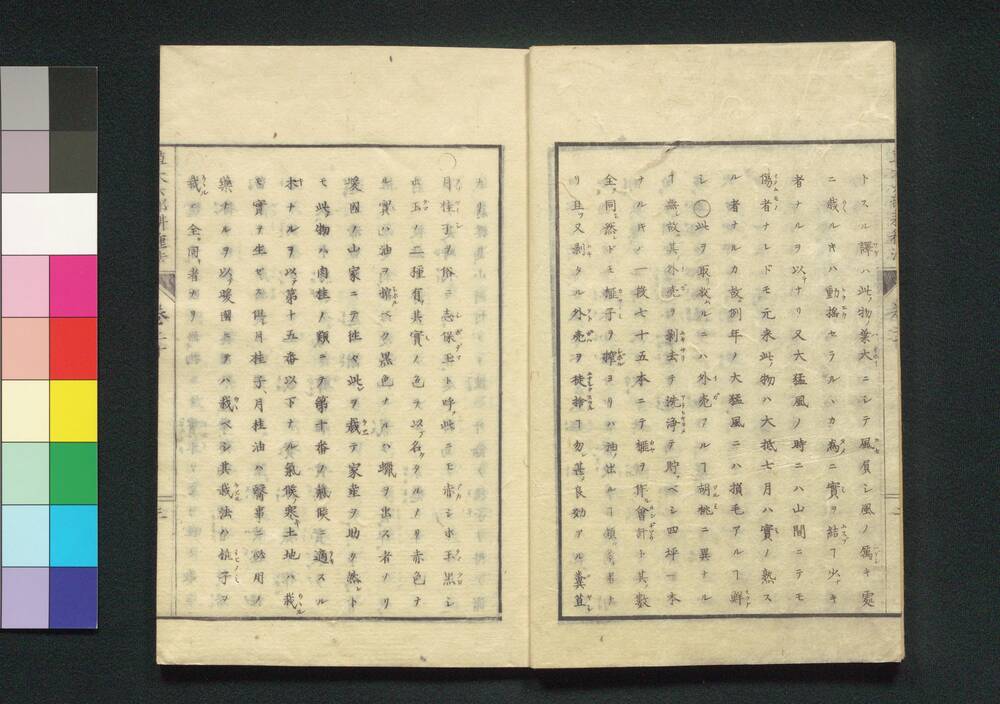 トスル譯ハ此物葉大ニシテ風負シ風ノ厲キ處
ニ栽ルキハ動搖セラルハカ為ニ實ヲ結ヿ少ナキ
者ナルヲ以ナリ又大猛風ノ時ニハ山間ニテモ
傷者ナレドモ元来此物ハ大抵七月ハ實ノ熟ス
ル者ナルカ故例年ノ大猛風ニハ損毛アルヿ鮮
シ○此ヲ取收ルニハ外壳アルヿ胡桃ニ異ナル
ヿ無故其外壳ヲ剥去テ洗浄テ貯ベシ四坪一本
ナルキノ一段七十五本ニテ榧ヲ作會計ト其數
全同然ドモ榧子ヲ搾ヨリハ油ノ出ルヿ頗多者ナ
リ且又剥タル外壳ヲ徒捨ヿ勿甚良効アル糞苴
月桂子ヲ俗ニ志保玉ト呼此ニモ赤シホ玉黒シ
ホ玉ノ二種有其實ノ色ヲ以名タルノミ赤色ナ
ル實ハ油ヲ搾ベク黒色ナルハ蠟ヲ出ス者ナリ
暖國ノ山家ニテ往々此ヲ栽テ家産ヲ助タ然ト
モ此物ハ肉桂ノ類ニテ第十番ノ氣候ニ適スル
木ナルヲ以第十五番以下ナル氣候ノ寒土地ハ栽
モ實ヲ生セズ偶月桂子、月桂油ハ醫事ニ必用ノ
藥ナルヲ以暖國ニテハ栽ベシ其栽法ハ梔子ヲ
栽ト全同者ナリ